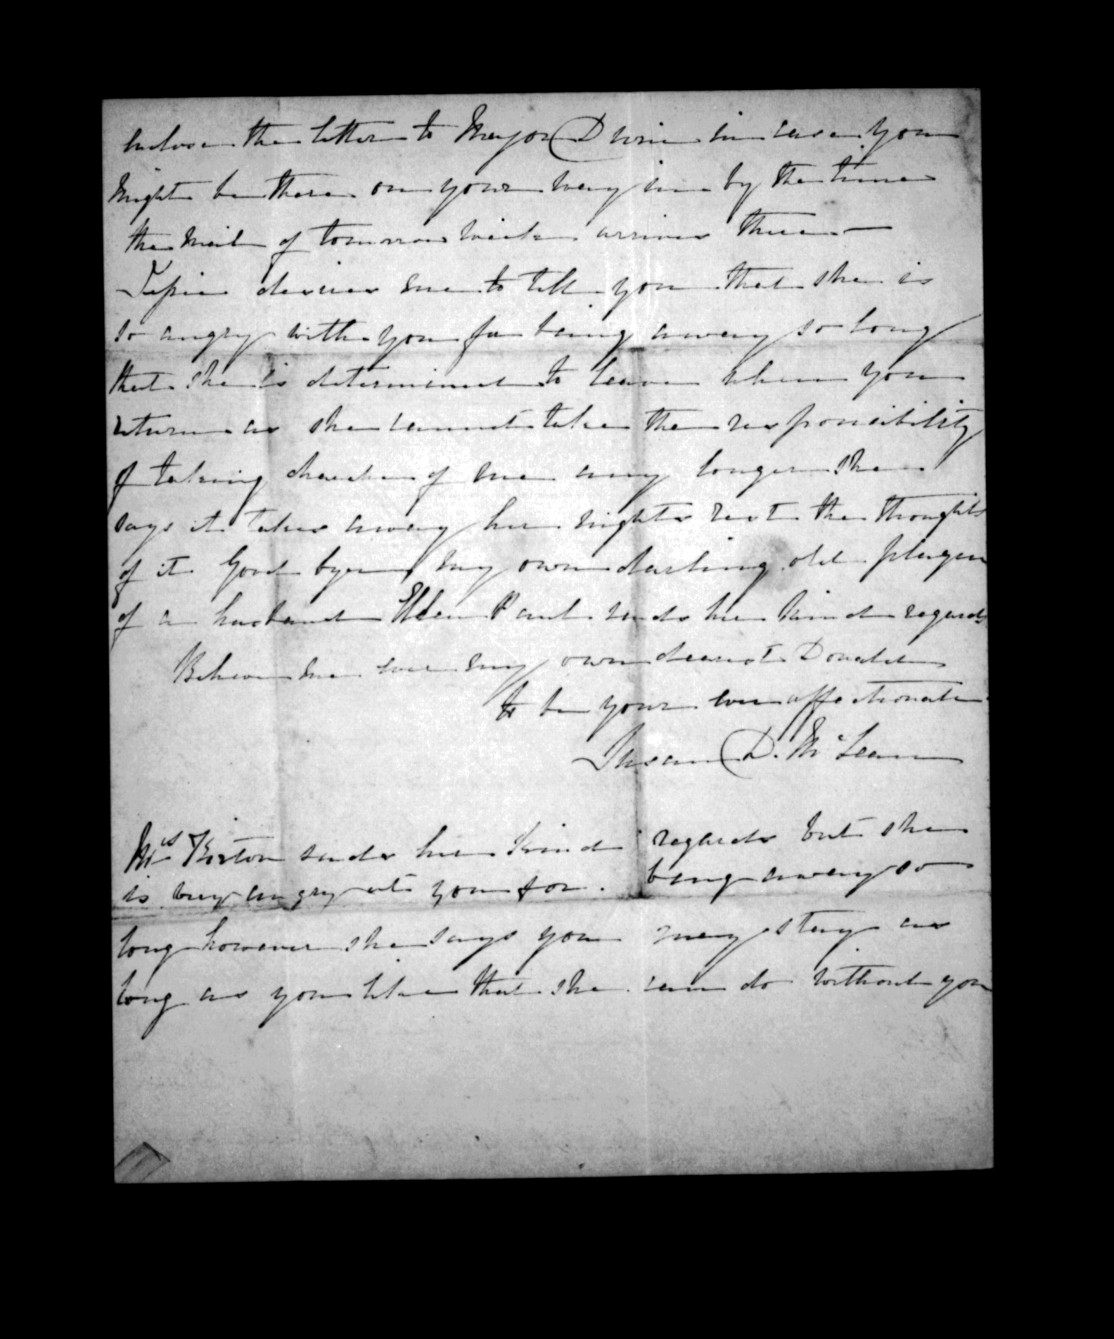 Inclose the letter to Major Durie in case you
might be there on your way in by the time
the Mail of tomorrow week arrives there—
desires me to tell you that she is
so angry with you for being away so long
that she is determined to leave when you
return as she cannot take the responsibility
of taking charge of me any longer She
says it takes away her nights rest the thoughts
of it Good bye my own darling old plague
of a husband Ellen Park sends her kind regards
Believe me ever my own dearest Donald
to be your ever affectionate
Susan D. McLean
Mrs Kirton sends her Kind regards but she
is very angry at you for being away so
long however she says you may stay as
long as you like that she can do without you